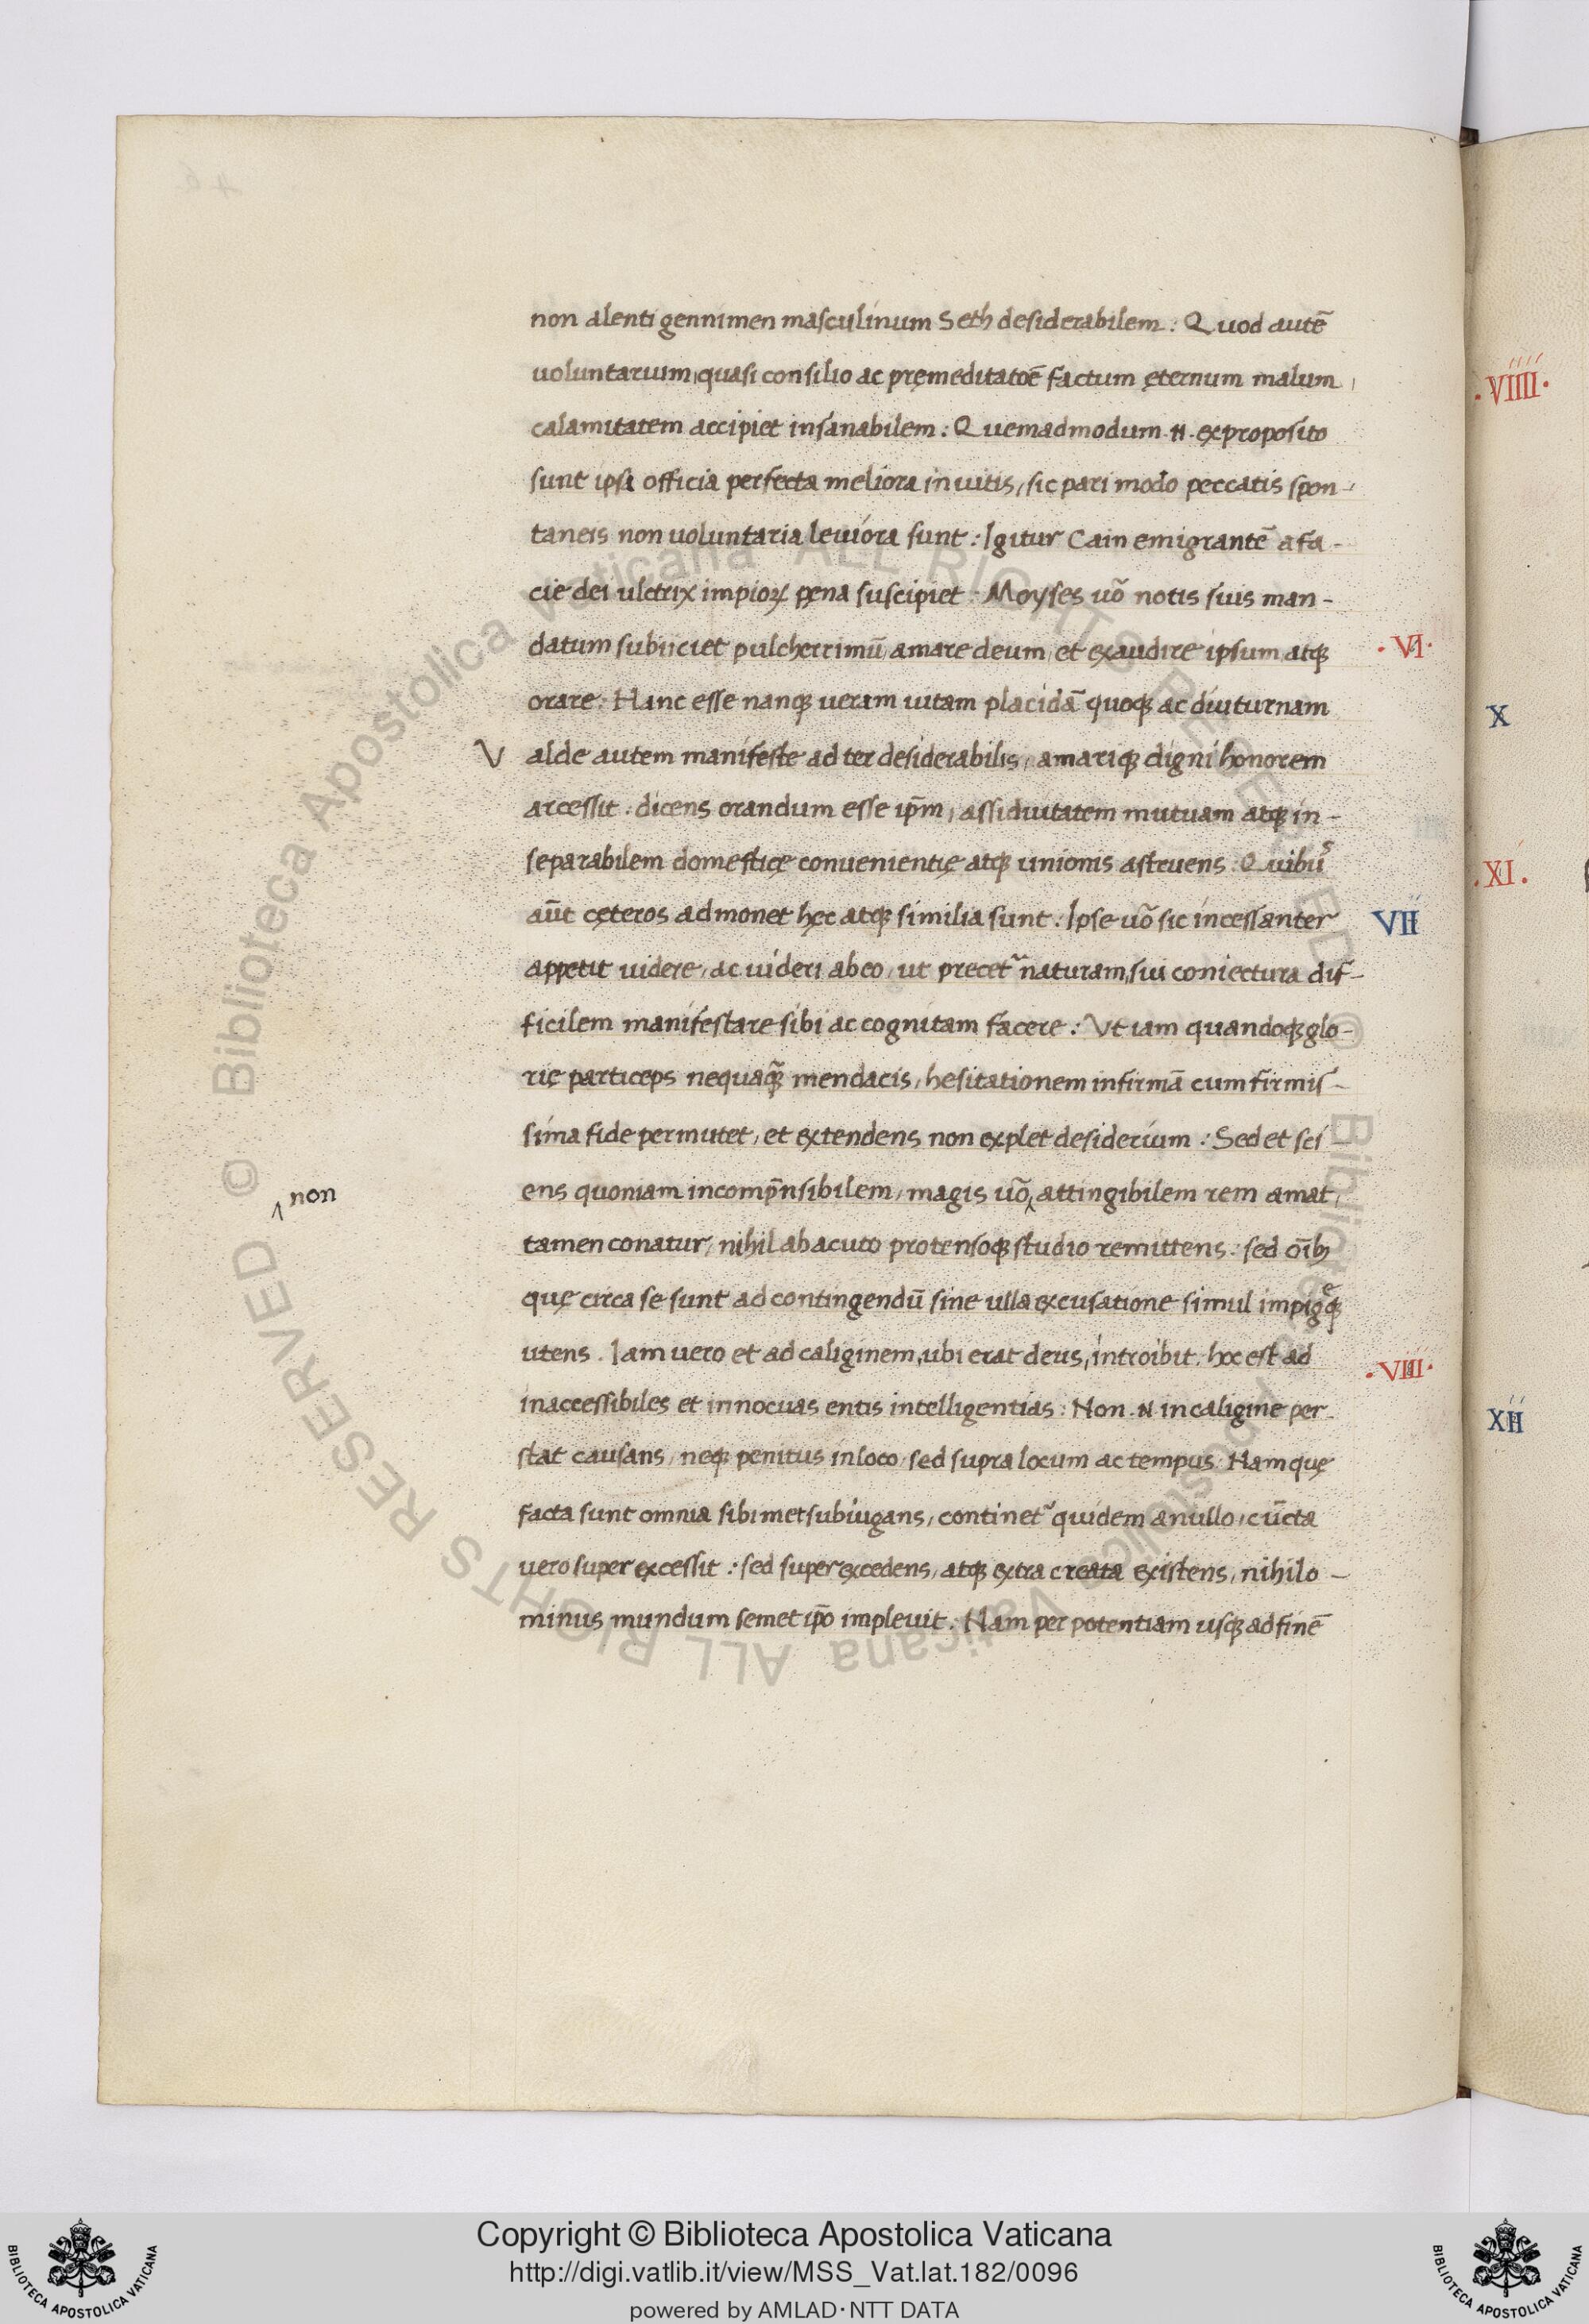 non alenti gennimen masculinum Seth desiderabilem : Quod autē
uoluntarium, quasi consilio ac pręmeditatōē factum ęternum malum,
calamitatem accipiet insanabilem : Quemadmodum .n. ex proposito
sunt ipsa officia perfecta meliora inuitis, sic pari modo peccatis spon-
taneis non uoluntaria leuiora sunt : Igitur Cain emigrantē a fa-
cie dei ulctrix impioꝝ pęna suscipiet : Moyses uō notis suis man-
datum subiiciet pulcherrimū, amare deum, et exaudire ipsum atqꝫ
orare : Hanc esse nanqꝫ ueram uitam placidā quoqꝫ ac diuturnam
Valde autem manifeste ad ter desiderabilis, amariqꝫ digni honorem
arcessit : dicens orandum esse ip̄m, assiduitatem mutuam atqꝫ in-
separabilem domesticę conuenientię atqꝫ unionis astruens : Quibus
aūt cęteros admonet hęc atqꝫ similia sunt : Ipse uō sic incessanter
appetit uidere, ac uideri ab eo, ut precet᷑ naturam, sui coniectura dif-
ficilem manifestare sibi ac cognitam facere : Vt iam quandoqꝫ glo-
rię particeps nequaqꝫ̄ mendacis, hesitationem infirmā cum firmis-
sima fide permutet, et extendens non explet desiderium : Sed et sci-
ens quoniam incomp̄nsibilem, magis uō ‸ attingibilem rem amat,
‸ non
tamen conatur, nihil ab acuto protensoqꝫ studio remittens : sed oībꝫ
quę circa se sunt ad contingendū sine ulla excusatione simul impigreqꝫ
utens. Iam uero et ad caliginem, ubi erat deus, introibit : hoc est ad
inaccessibiles et innocuas entis intelligentias : Non .n. in caligine per-
stat causans, neqꝫ penitus in loco, sed supra locum ac tempus : Nam quę
facta sunt omnia sibimet subiugans, continet᷑ quidem a nullo, cūcta
uero super excessit : sed super excedens, atqꝫ extra creata existens, nihilo-
minus mundum semet ip̄o impleuit : Nam per potentiam usqꝫ ad finē
.VI.
VII
.VIII.
.VIIII.
X
.XI.
XII
© Biblioteca Apostolica Vaticana ALL RIGHTS RESERVED © Biblioteca Apostolica Vaticana ALL RIGHTS RESERVED
Copyright © Biblioteca Apostolica Vaticana
http://digi.vatlib.it/view/MSS_Vat.lat.182/0096
powered by AMLAD·NTT DATA
BIBLIOTECA APOSTOLICA VATICANA
BIBLIOTECA APOSTOLICA VATICANA